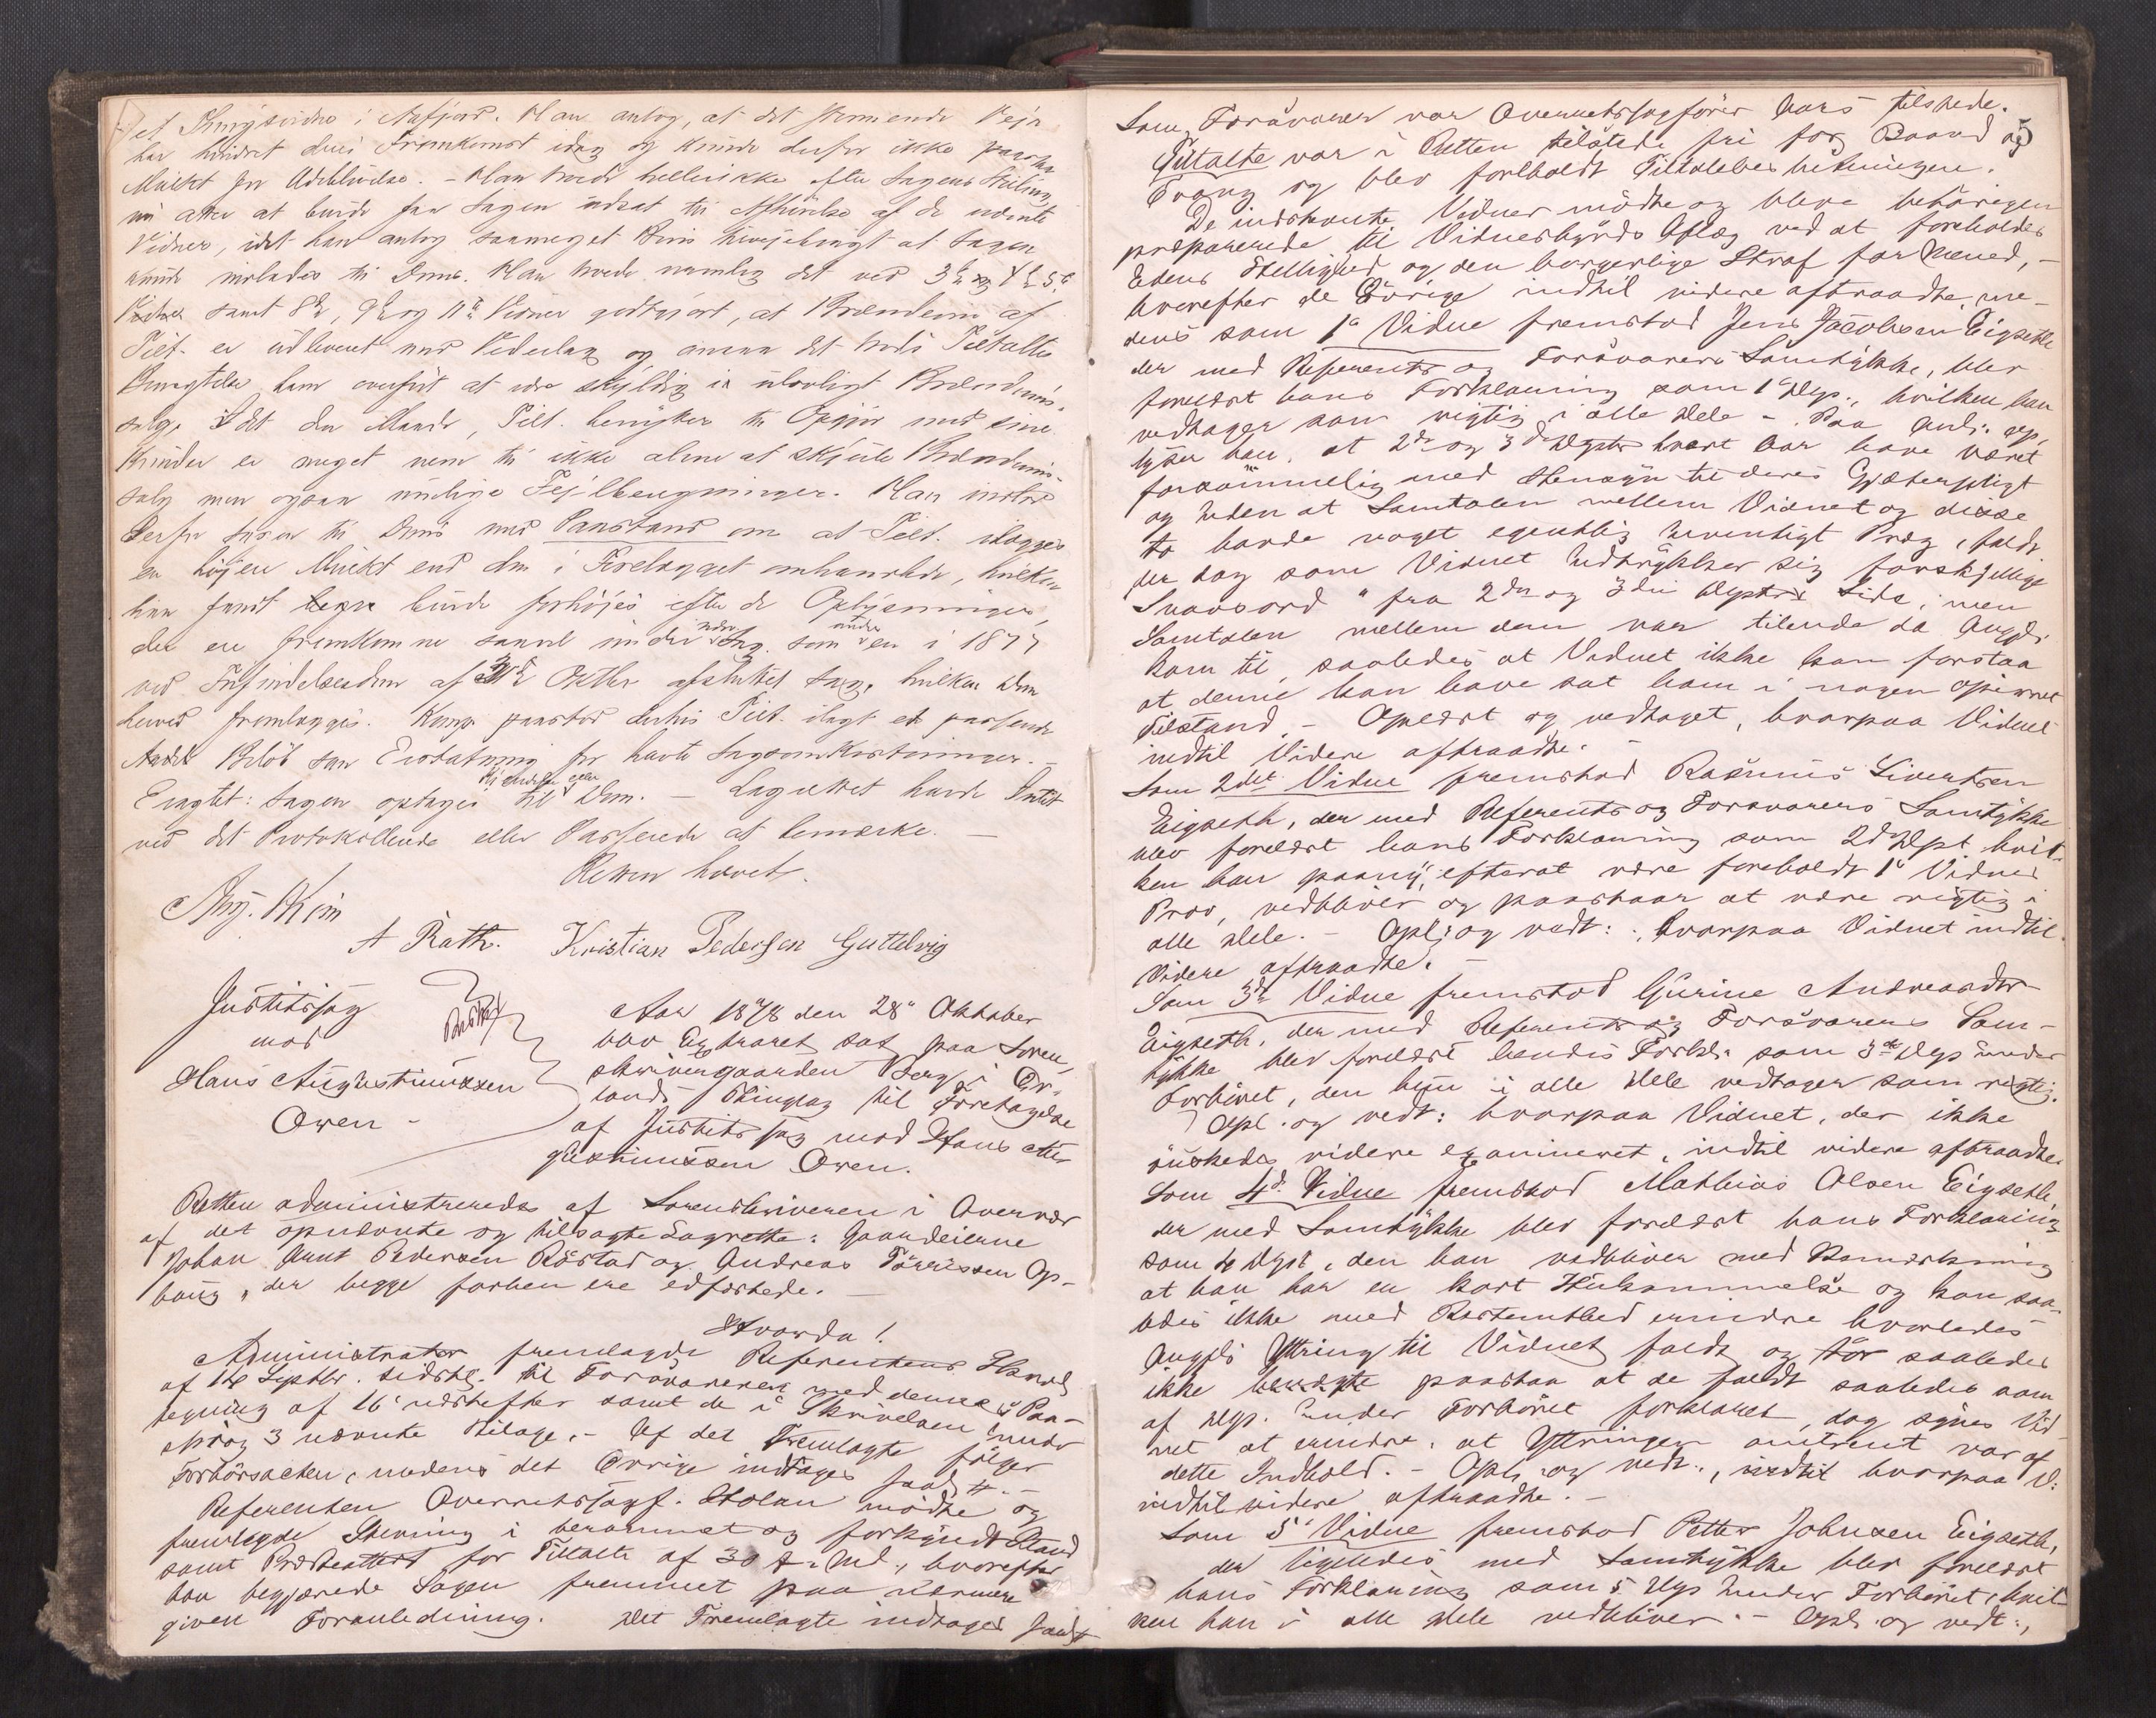 et Thingsvidne i Aafjord. Han antog, at det stormende Vejr
har hindret dens Fremkomst idag og kunde derfor ikke paastaa
Mulkt for Udeblivelse. – Han troede hellerikke efter Sagens Stilling
nu atter at burde faa Sagen udsat til Afhørelse af de udeneste
Vidner, idet han antog saameget Bevis tilvejebragt at Sagen
kunde indlades til Doms. Han troede nemlig det ved 3die og 4de 5te
Vidner samt 8de, 9de og 11te Vidner godtgjort, at Brændevin af
Tilt. er udleveret mod Vederlag og ansaa det trods Tiltaltes
Benægtelse ham overført at være skyldig i ulovligt Brændevins-
salg. Idet den Maade, Tilt. benytter til Opgjør med sine
Kunder er meget nem til ikke alene at skjule Brændevins-
salg men ogsaa mulige Fejlberegninger. Han indlod
derfor Sagen til Doms med Paastand om at Tilt. ilægges
en højere Mulkt end den i Forelægget omhandlede, hvilken
han fandt burde forhøjes efter de Oplysninger,
der ere fremkomne saavel under Sag. som den i 1877
ved Indfindelsesdom af Oktbr afsluttet Sag, hvilken Dom
herved fremlægges. Komp. paastod derhos Tilt. ilagt et passende
Beløb som Erstatning for havte Sagsomkostninger. –
Eragtet: Sagen optages til Kjendelse eller Dom. – Lagrettet havde Intet
ved det Protokollerede eller Passerede at bemærke. –
Retten hævet.
A Rath. Kristian Pedersen Guttelvig
Justitssag
mod
Hans Augustinussen
Owen -
Aar 1878 den 28de Oktober
blev Extraret sat paa Soren-
skrivergaarden Berg i Ør-
lands Thinglag til Foretagelse
af Justitssag mod Hans Au-
gustinussen Owen.
Retten administreredes af Sorenskriveren i Overvær
af det opnævnte og tilsagte Lagrette: Gaardeierne
Johan Arnt Pedersen Røstad og Andreas Tørrissen Op-
haug, der begge forhen ere edfæstede. –
Hvorda!
Administrator fremlagde Referentens Skrivelse
af 14 Septbr. sidstl. til Forsvareren med dennes Paa-
tegning af 16 næstefter samt de i Skrivelsen under
3 nævnte Bilage. – Af det Fremlagte følger
Forhørsakten, medens det Øvrige indtages saal. #. –
Referenten Overretssagf. Holan mødte og
fremlagde Stevning i berammet og forkyndt Stand
samt Præsteattest for Tiltalte af 30 f. Md., hvorefter
han begjærede Sagen fremmet paa nærmere
given Foranledning. Det Fremlagte indtages saal #
Som Forsvarer var Overretssagfører Aars tilstede.
Tiltalte var i Retten tilstede fri for Baand og
Tvang og blev foreholdt Tiltalebeslutningen.
De indstevnte Vidner mødte og bleve behørigen
præparerede til Vidnesbyrds Aflæg ved at foreholdes
Edens Hellighed og den borgerlige Straf for Mened, –
hvorefter de Øvrige indtil videre aftraadte, me-
dens som 1ste Vidne fremstod Jens Jacobsen Eigseth
der med Referents og Forsvarers Samtykke, blev
forelæst hans Forklaring som 1ste Dep., hvilken han
vedtager som rigtig i alle Dele. – Paa Anl. op-
lyser han, at 2den og 3die Depts hvert Aar have været
forsømmelig med Hensyn til deres Gjæstepligt
og uden at Samtalen mellem Vidnet og disse
to havde noget egentlig uvenligt Præg, faldt
der dog som Vidnet udtrykker sig forskjellige
"Svarsord" fra 2den og 3die Deptes Side; men
Samtalen mellem dem var tilende da Angjl.
kom til, saaledes at Vidnet ikke kan forstaa
at denne kan have sat ham i nogen opirret
Tilstand. – Oplæst og vedtaget, hvorpaa Vidnet
indtil Videre aftraadte. –
Som 2det Vidne fremstod Rasmus Sivertsen
Eigseth, der med Referents og Forsvarers Samtykke
blev forelæst hans Forklaring som 2det Dept hvil-
ken han paany, efterat være foreholdt 1ste Vidnes
Prov, vedbliver og paastaar at være rigtig i
alle Dele. – Opl: og vedt: , hvorpaa Vidnet indtil
Videre aftraadte. –
Som 3de Vidne fremstod Gurine Andreasdtr
Eigseth, der med Referents og Forsvarers Sam-
tykke blev forelæst hendes Forkl. som 3die Dep under
Forhøret, den hun i alle Dele vedtager som rigtig.
Opl. og vedt: hvorpaa Vidnet, der ikke
ønskedes videre examineret, indtil videre aftraadte.
Som 4de Vidne fremstod Mathias Olsen Eigseth
der med Samtykke blev forelæst hans Forklaring
som 4 Dept, den han vedbliver med Bemærkning
at han har en kort Hukommelse og kan saa-
ledes ikke med Bestemthed erindre hvorledes
Angjls Yttring til Vidnet faldt og tør saaledes
ikke paastaa at de faldt saaledes som
af Dep. under Forhøret forklaret, dog synes Vid-
net at erindre, at Yttringen omtrent var af
dette Indhold. – Opl. og vedt., hvorpaa V:
indtil videre aftraadte. –
Som 5te Vidne fremstod Petter Johnsen Eigseth,
der ligeledes med Samtykke blev forelæst
hans Forklaring som 5 Dep under Forhøret, hvil-
ken han i alle Dele vedbliver. – Opl. og vedt:,